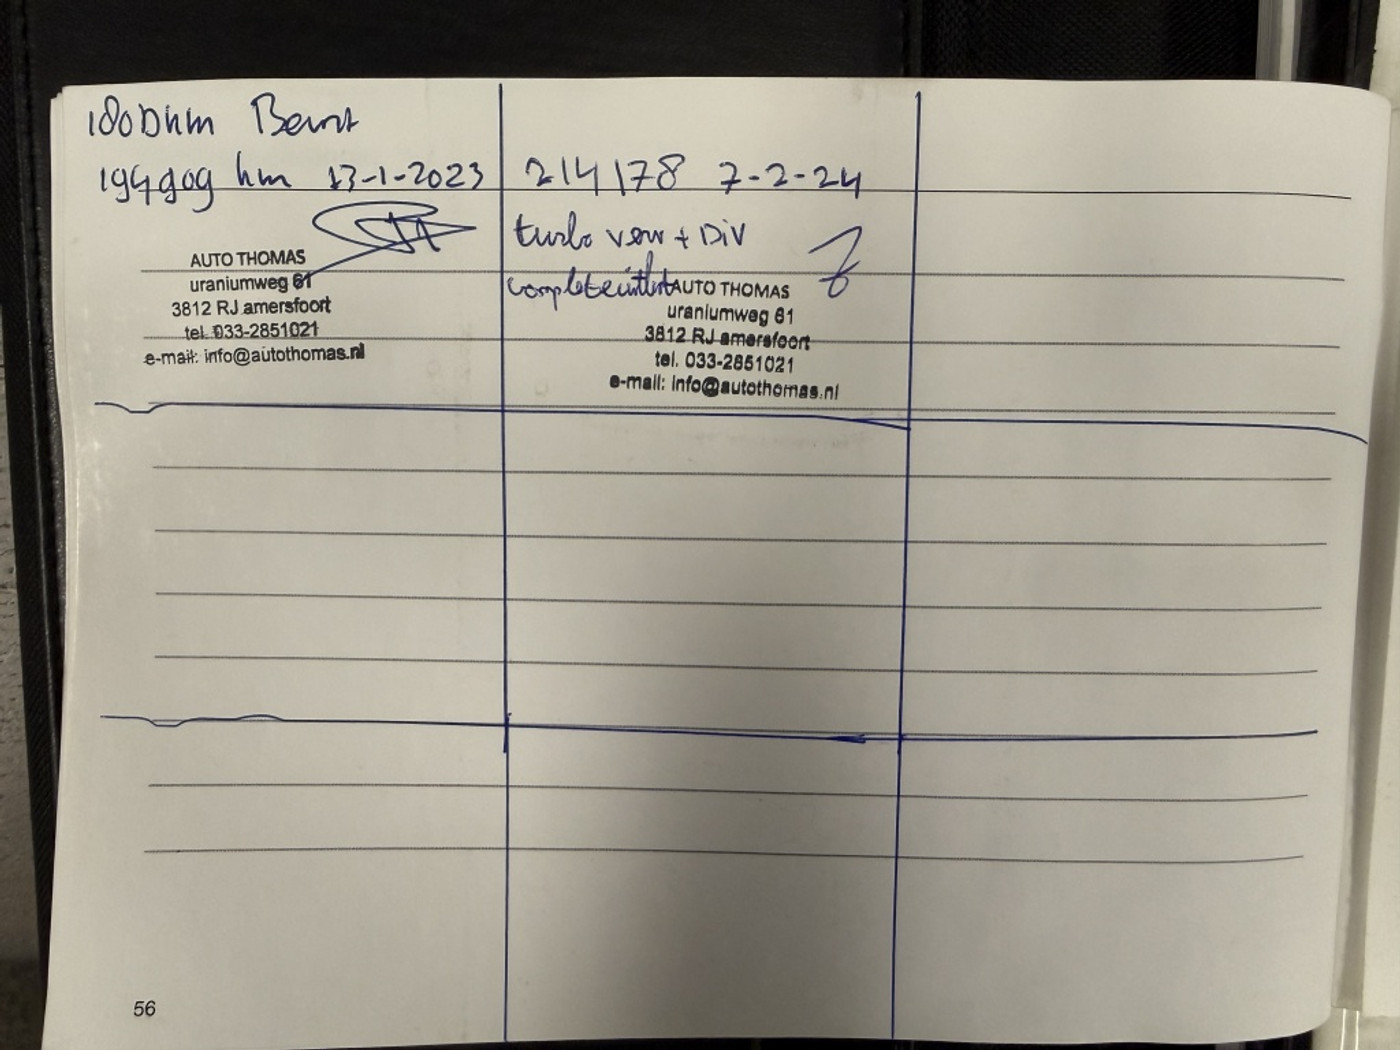 180Dkm Beurt
199909 km 13-1-2023
AUTO THOMAS
uraniumweg 61
3812 RJ amersfoort
tel. 033-2851021
e-mail: info@autothomas.nl
214178 7-2-24
turbo verv + DiV
complete
AUTO THOMAS
uraniumweg 61
3812 RJ amersfoort
tel. 033-2851021
e-mail: info@autothomas.nl
56